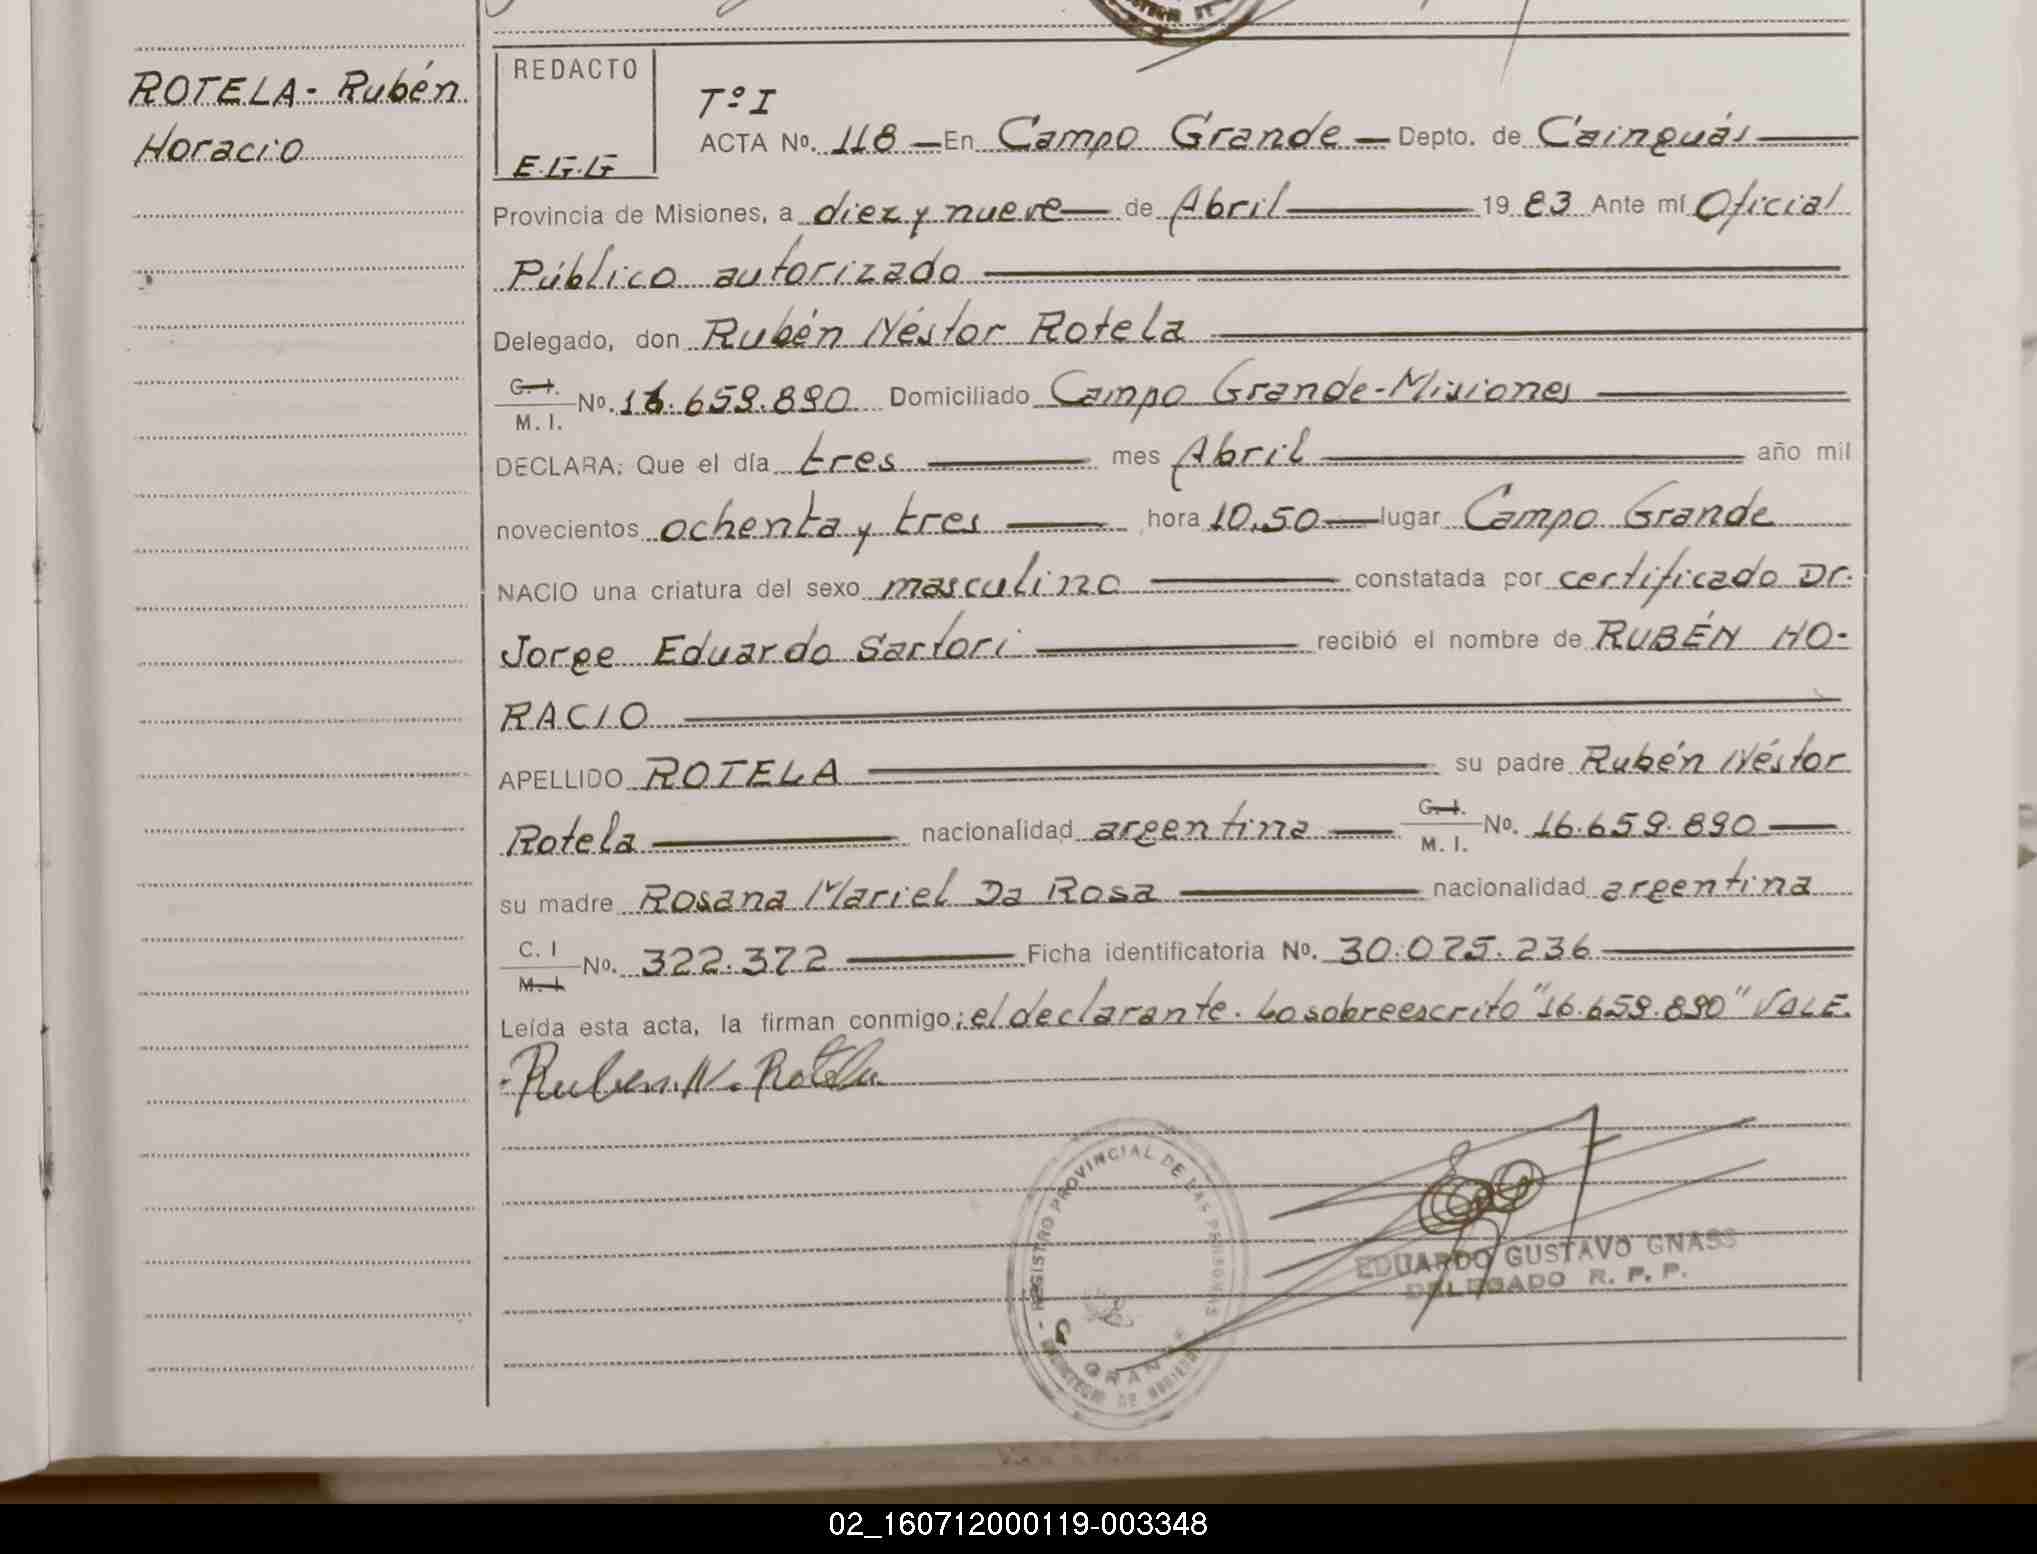 ROTELA - Rubén
Horacio
REDACTO
E.G.G
Tº I
ACTA Nº. 118 — En Campo Grande — Depto. de Cainguás
Provincia de Misiones, a diez y nueve — de Abril — 19 83 Ante mí Oficial
Público autorizado
Delegado, don Rubén Néstor Rotela
C. I.
M. I.
Nº. 16.659.890 Domiciliado Campo Grande - Misiones
DECLARA: Que el día tres — mes Abril — año mil
novecientos ochenta y tres — hora 10,50 — lugar Campo Grande
NACIO una criatura del sexo masculino — constatada por certificado Dr.
Jorge Eduardo Sartori — recibió el nombre de RUBÉN HO-
RACIO
APELLIDO ROTELA — su padre Rubén Néstor
Rotela — nacionalidad argentina — C. I. M. I. Nº. 16.659.890
su madre Rosana Mariel Da Rosa — nacionalidad argentina
C. I
M. I.
Nº. 322.372 — Ficha identificatoria Nº. 30.075.236
Leída esta acta, la firman conmigo: el declarante. Lo sobreescrito "16.659.890" VALE.
Ruben N. Rotela
REGISTRO PROVINCIAL DE LAS PERSONAS
MINISTERIO DE GOBIERNO
C. GRANDE
EDUARDO GUSTAVO GNASS
DELEGADO R. P. P.
02_160712000119-003348